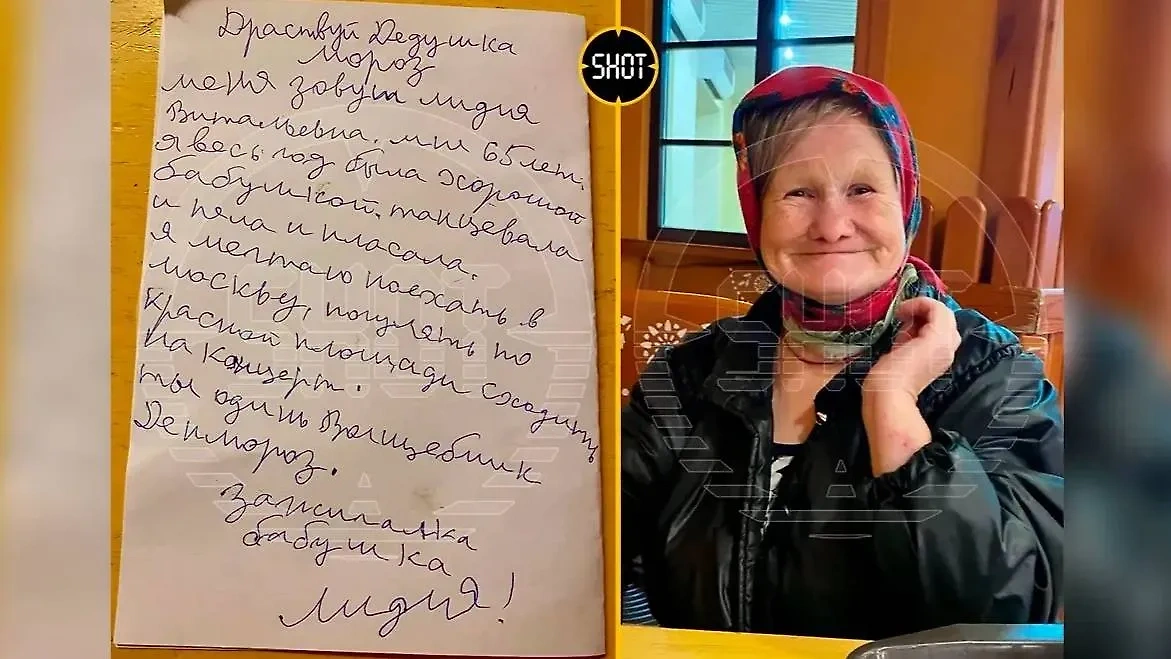 Драствуй Дедушка
Мороз
меня зовут лидия
Витальевна. мне 65 лет.
я весь год была хорошой
бабушкой. танцевала
и пела и пласала.
я мечтаю поехать в
москву, погулять по
красной площади сходить
на концерт.
ты один Волщебник
Денмороз.
Зажигалка
бабушка
лидия!
SHOT